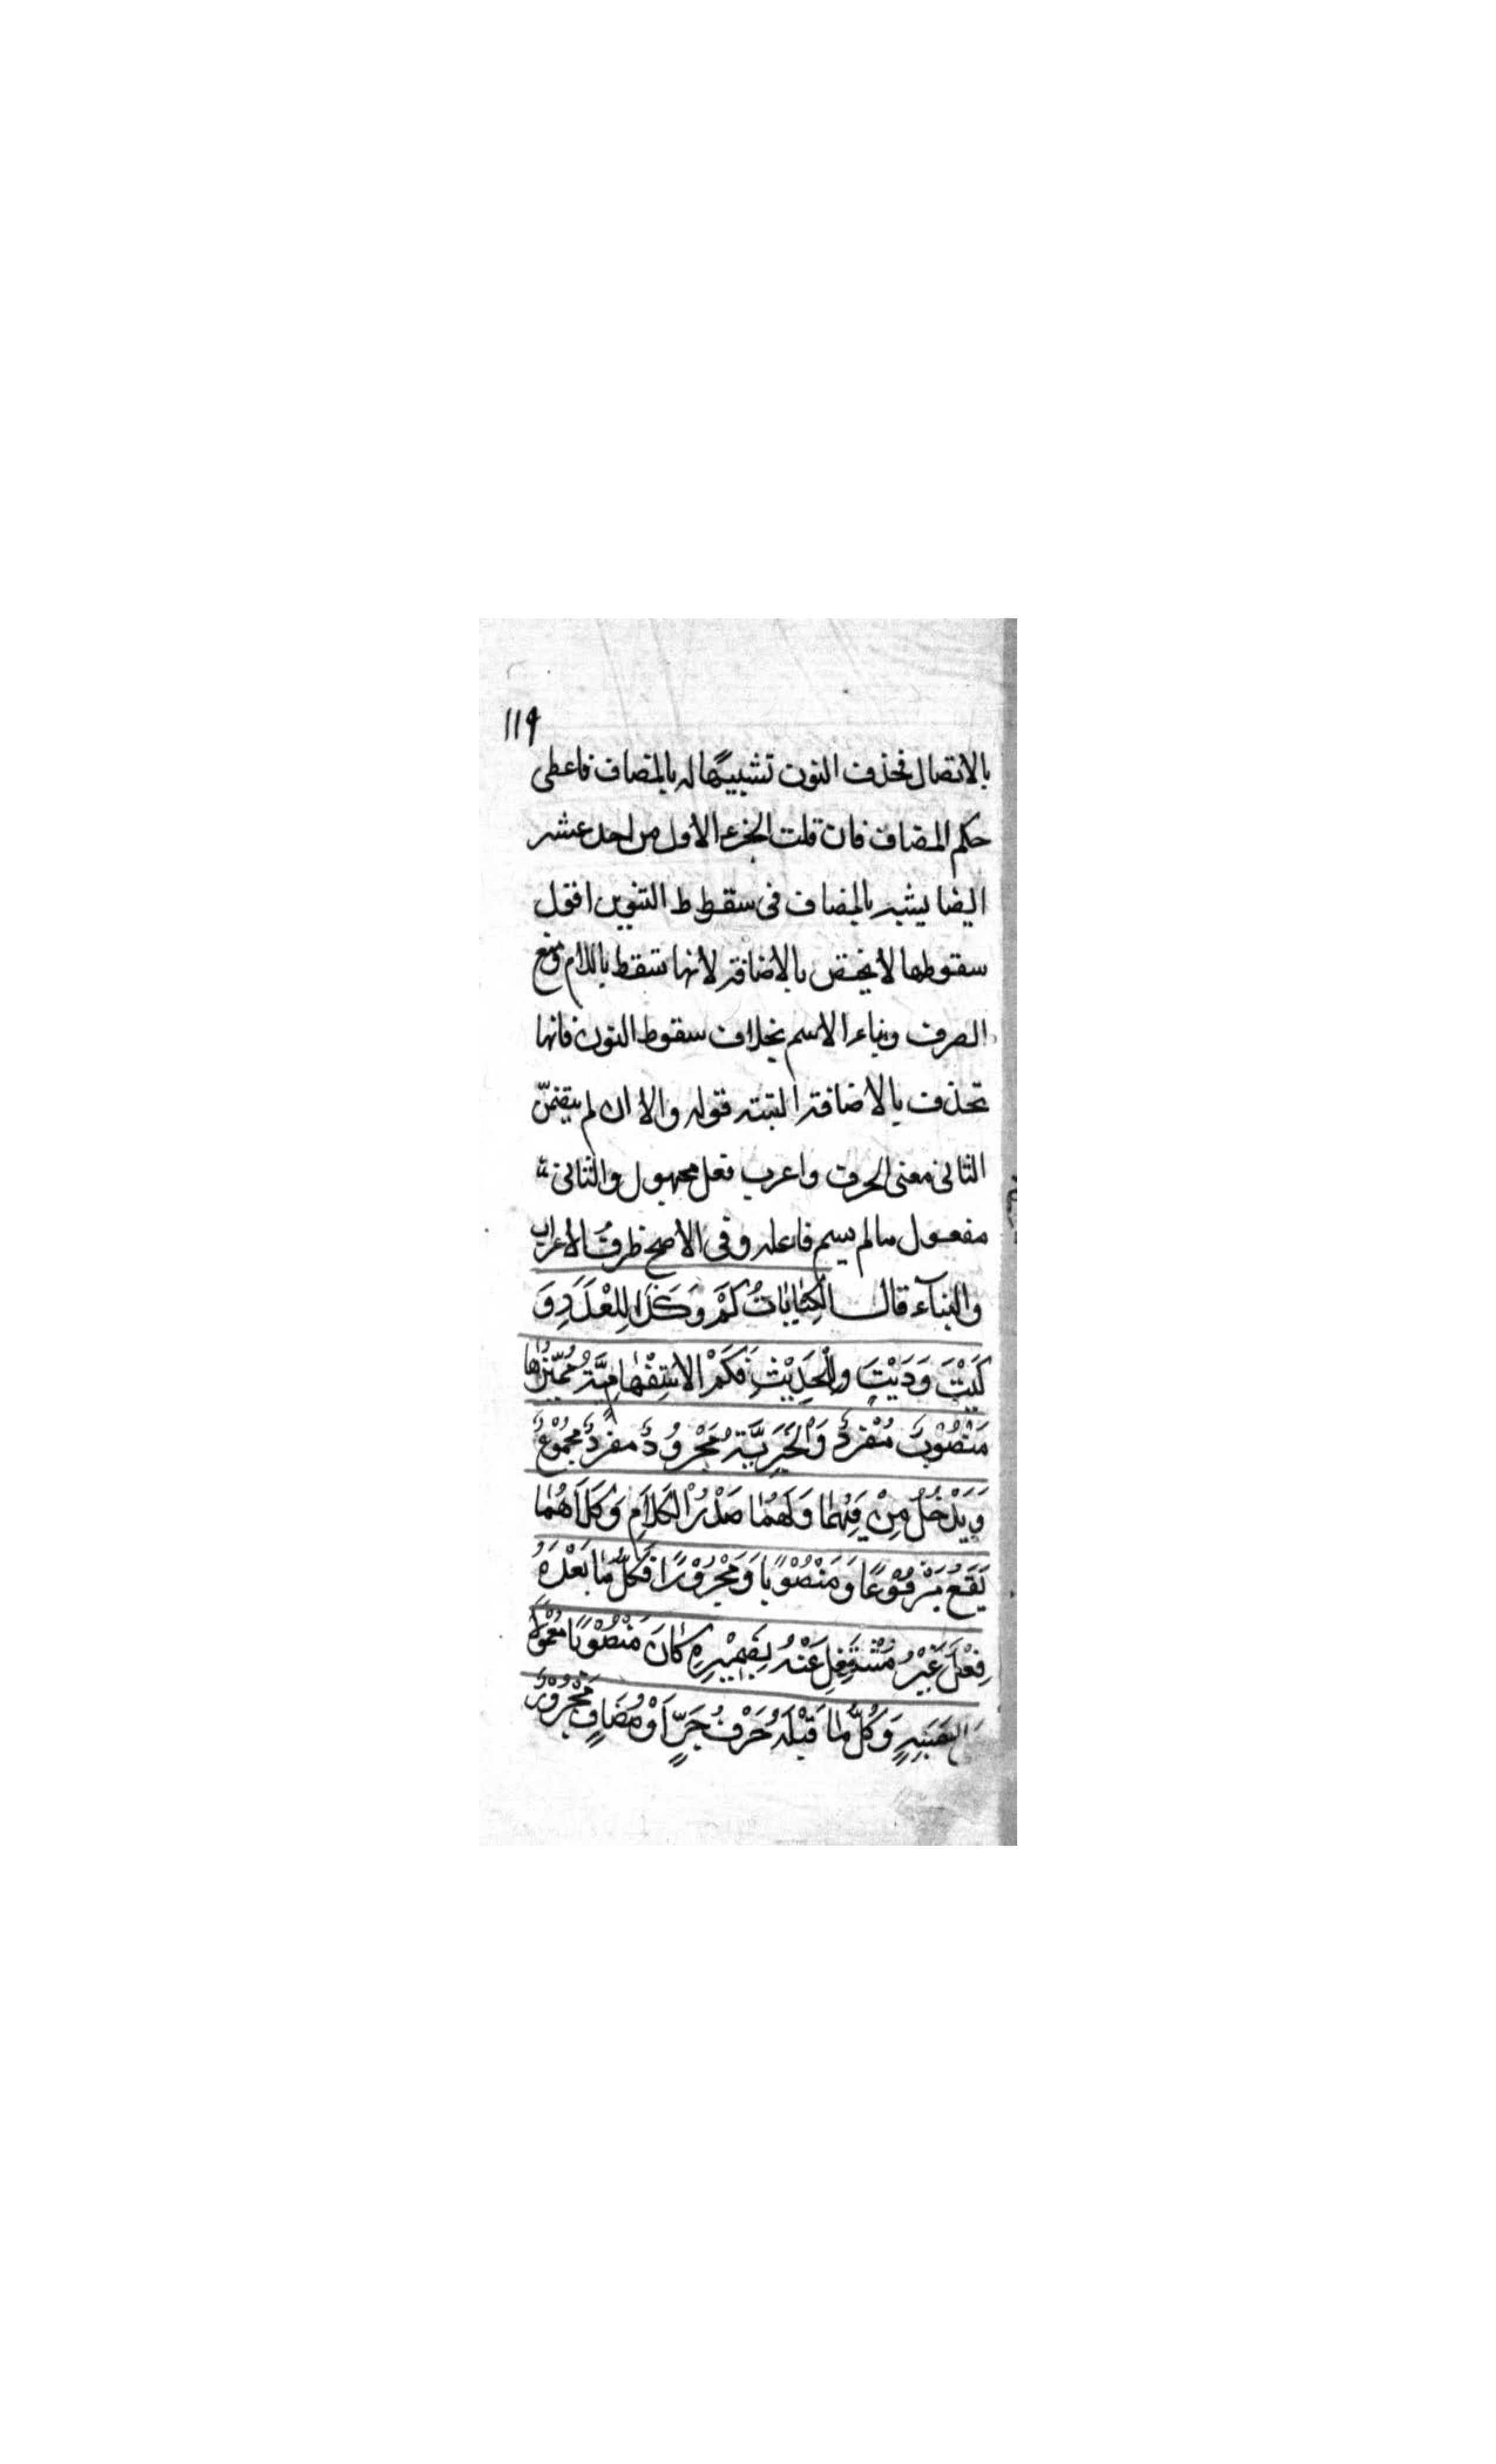 ١١٩
بالاتصال فحذف النون تشبيهًا له بالمضاف فاعطى
حكم المضاف فان قلت الجزء الاول من احد عشر
ايضا يشبه بالمضاف فى سقوط ط التنوين اقول
سقوطها لا يختص بالاضافة لانها تسقط باللام ومنع
الصرف وبناء الاسم بخلاف سقوط النون فانها
تحذف بالاضافة البتة قوله والا ان لم يتضمّن
الثانى معنى الحرف واعرب فعل مجهول والثانى
مفعول مالم يسم فاعله وفى الاصح ظرف الاعراب
والبنآء قال الكِنَايَاتُ كَمْ وَكَذَا لِلْعَدَدِ وَ
كَيْتَ وَدَيْتَ وللْحَدِيْثِ فَكَمْ الاسْتِفْهَامِيَّةُ مُمَيّزُهَا
مَنْصُوْبٌ مُفْرَدٌ وَالْخَبَرِيَّةُ مَجْرُوْدٌ مفْرَدٌ مجْمُوْعٌ
وَيَدْخُلُ مِنْ فِيْهِمَا وَلَهُمَا صَدْرُ الْكَلَامِ وَكلَاهُمَا
يَقَعُ مَرْفُوْعًا وَمَنْصُوْبًا وَمَجْرُوْرًا فَكُلُّ مَا بَعْدَهُ
فِعْلٌ غَيْرُ مُشْتَغِلٍ عَنْهُ بِضَمِيْرِهِ كَانَ مَنْصُوْبًا مَعْمُوْلًا
وَكُلُّ مَا قَبْلَهُ حَرْفُ جَرٍّ اَوْ مُضَافٍ مَجْرُوْرٌ